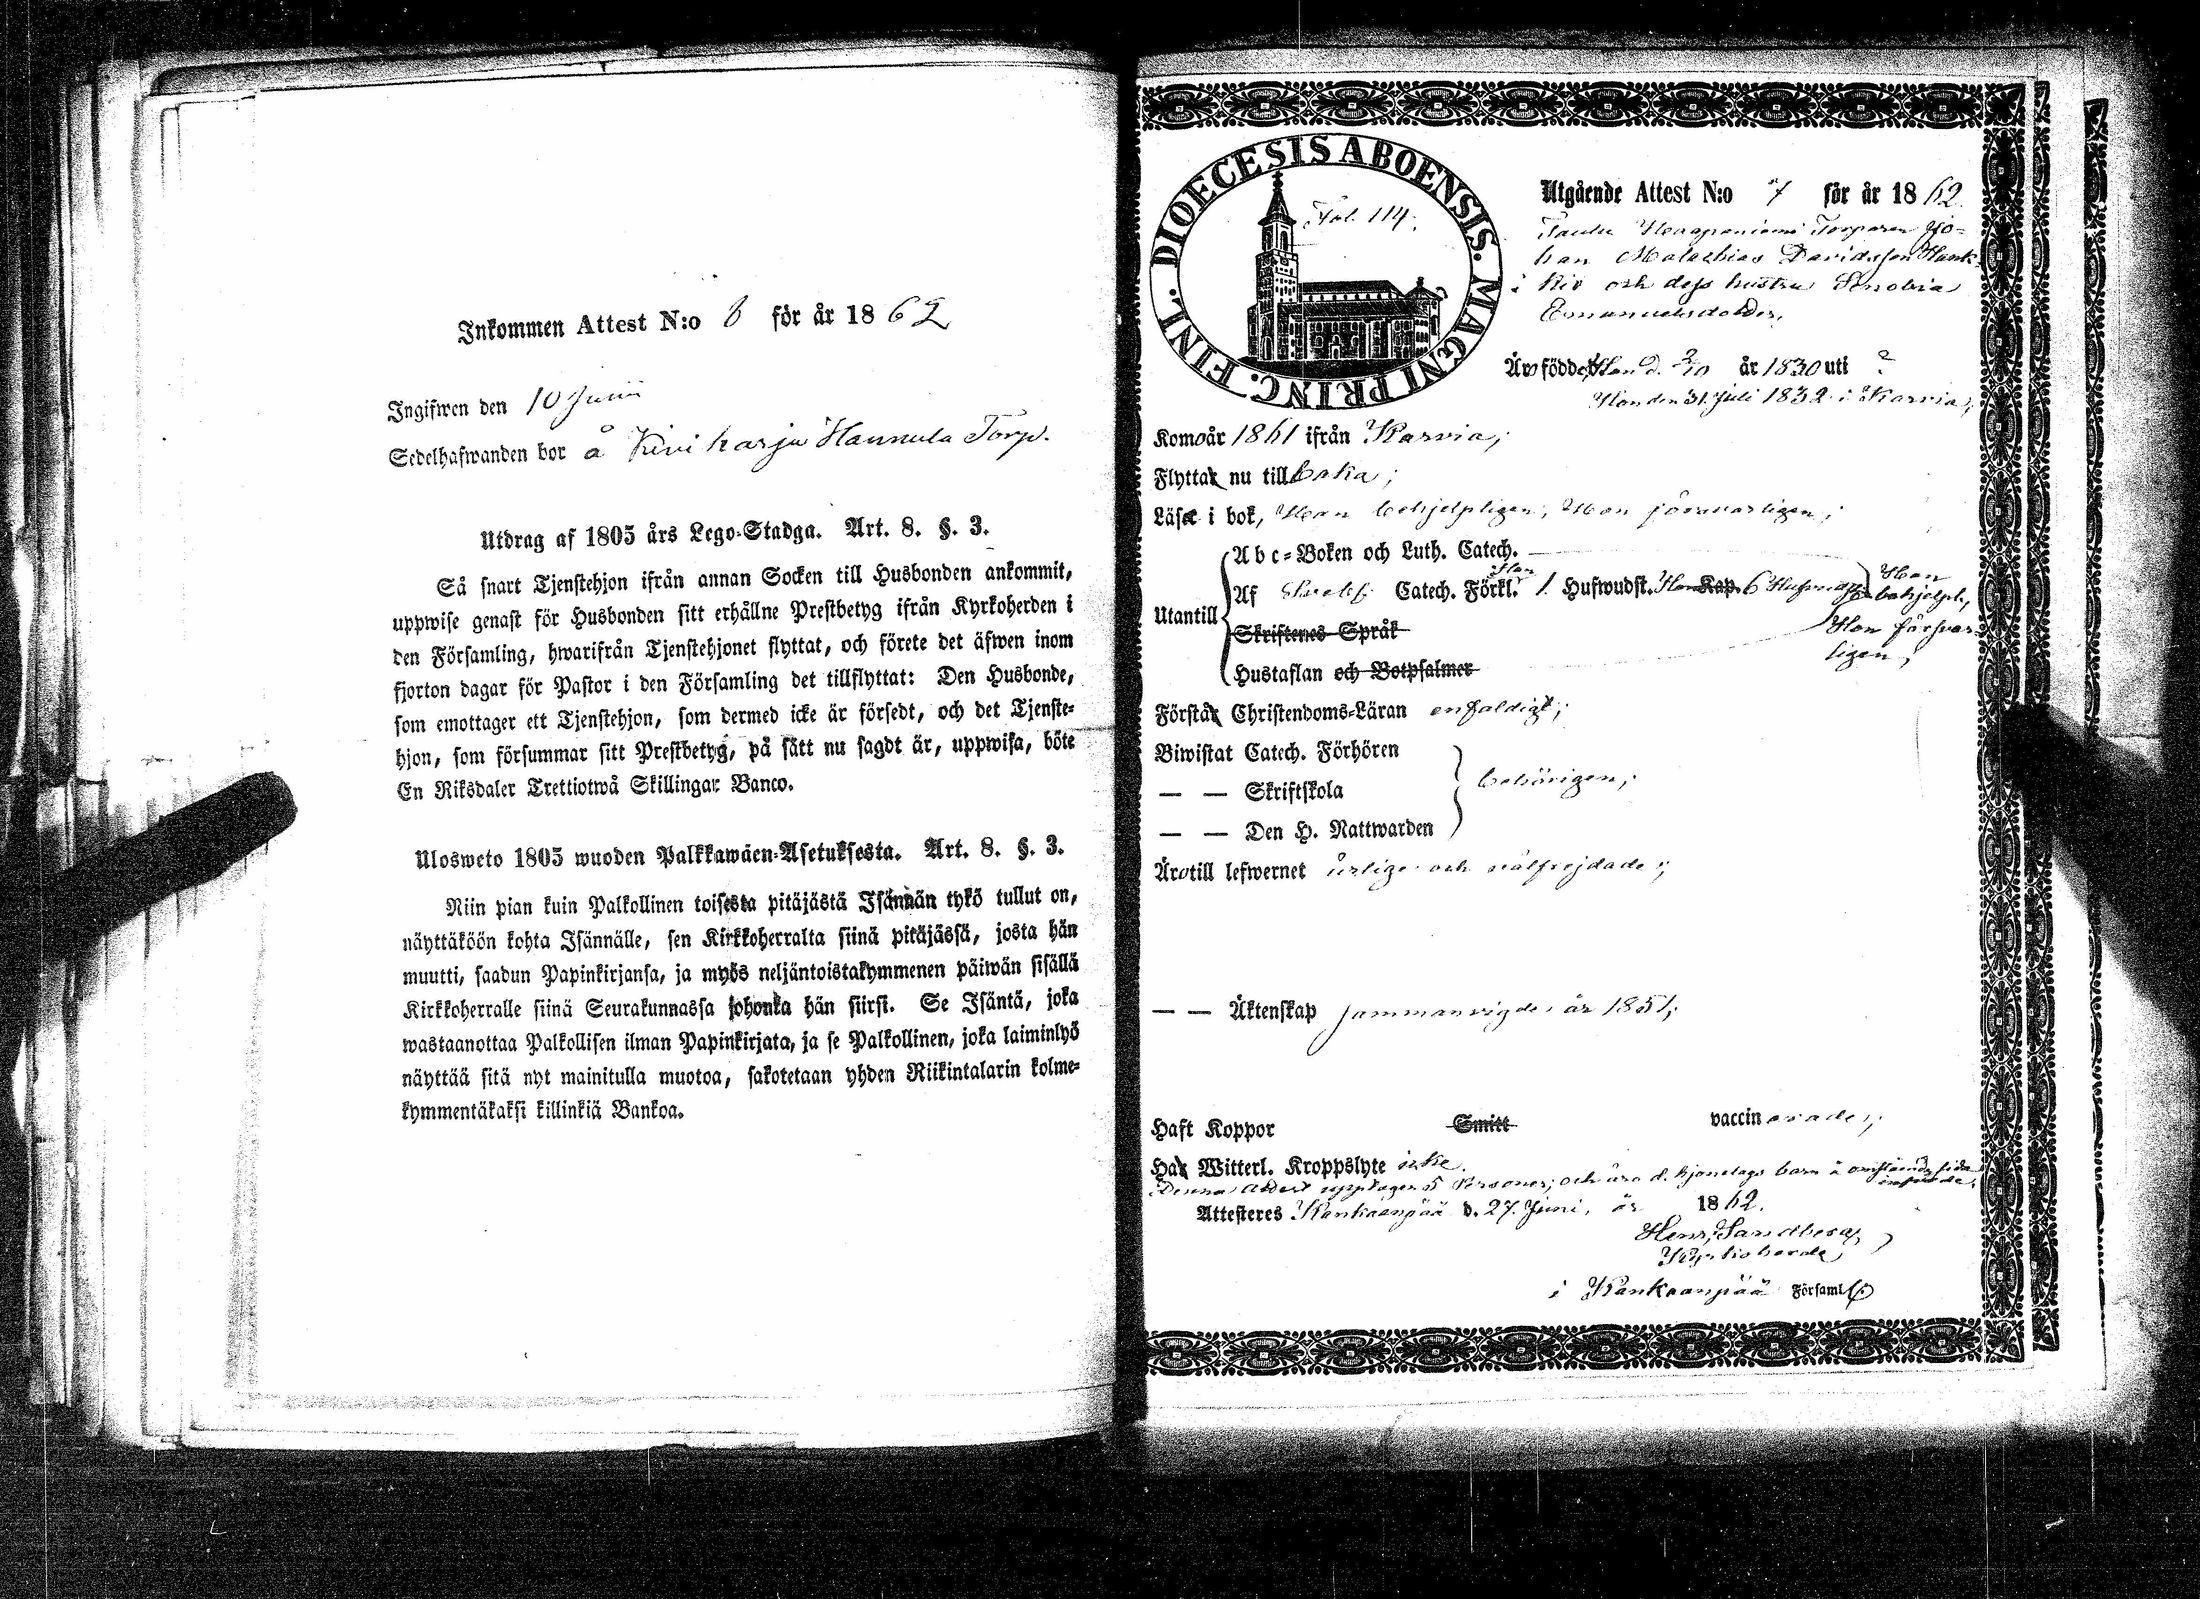 Inkommen Attest N:o 8 för år 1862
Ingifwen den 10 Junii
Sedelhafwanden bor å Kiviharju Hannula Torp.
Utdrag af 1805 års Lego-Stadga. Art. 8. §. 3.
Så snart Tjenstehjon ifrån annan Socken till Husbonden ankommit,
uppwise genast för Husbonden sitt erhållne Prestbetyg ifrån Kyrkoherden i
den Församling, hwarifrån Tjenstehjonet flyttat, och förete det äfwen inom
fjorton dagar för Pastor i den Församling det tillflyttat: Den Husbonde,
som emottager ett Tjenstehjon, som dermed icke är försedt, och det Tjenste-
hjon, som försummar sitt Prestbetyg, på sätt nu sagdt är, uppwisa, böte
En Riksdaler Trettiotwå Skillingar Banco.
Ulosweto 1805 wuoden Palkkawäen-Asetuksesta. Art. 8. §. 3.
Niin pian kuin Palkollinen toisesta pitäjästä Isännän tykö tullut on,
näyttäköön kohta Isännälle, sen Kirkkoherralta siinä pitäjässä, josta hän
muutti, saadun Papinkirjansa, ja myös neljäntoistakymmenen päiwän sisällä
Kirkkoherralle siinä Seurakunnassa johonka hän siirsi. Se Isäntä, joka
wastaanottaa Palkollisen ilman Papinkirjata, ja se Palkollinen, joka laiminlyö
näyttää sitä nyt mainitulla muotoa, sakotetaan yhden Riikintalarin kolme-
kymmentäkaksi killinkiä Bankoa.
DIOECESIS ABOENSIS. MAGNI PRINC. FINL.
Fol. 114.
Utgående Attest N:o 7 för år 1862.
Torparen Jo-
han Malachias Davidsson Hank-
i Kiv och dess hustru Senobia
Emanuelsdotter,
Äro födde, Han d. 3/10 år 1830 uti ?
Hon den 31 Juli 1832 i Karvia,
Komo år 1861 ifrån Karvia;
Flytta nu till
Läsa i bok, Han behjelpligen, Hon försvarligen;
Utantill
Abc-Boken och Luth. Catech.
Af Catech. Förkl. Han 1. Hufwudst. Hon Kap. 6 Hufvudst. Han behjelpl.,
Skriftenes Språk Hon försvar-
Hustaflan och Botpsalmer ligen,
Förstå Christendoms-Läran enfaldigt;
Biwistat Catech. Förhören
— — Skriftskola behörigen;
— — Den H. Nattwarden
Äro till lefwernet ärlige och välfrejdade;
— — Äktenskap sammanvigde år 1851;
Haft Koppor Smitt vaccinerade;
Ha Witterl. Kroppslyte icke.
Denna attest upptager 5 Personer; och äro d. hjonelags barn å omstående sida
införde;
Attesteres Kankaanpää d. 27 Juni, år 1862.
Henr. Sandberg,
Kyrkoherde,
i Kankaanpää Församl.